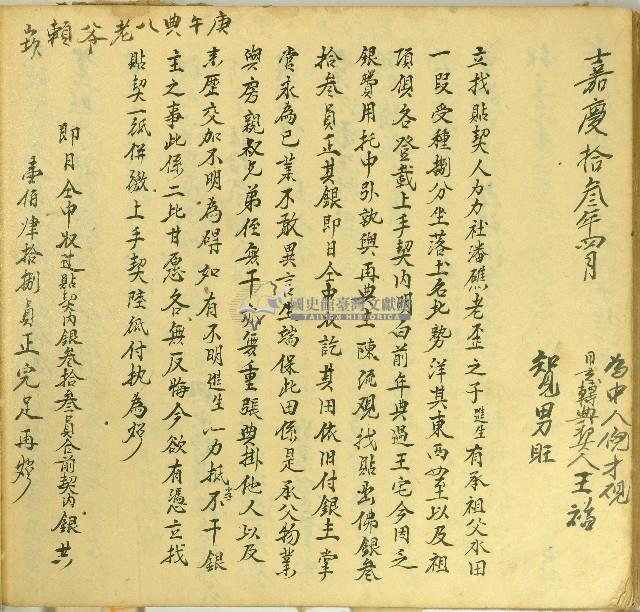 為中人倪才硯
嘉慶拾叁年四月 日立轉典契人王福
覽男旺
立找貼契人力力社潘礁老歪之子進生有承祖父水田
一段受種捌分坐落土名北勢洋其東西四至以及祖
項俱各登載上手契內明白前年典過王宅今因乏
銀費用托中引就與再典主陳琉觀找貼出佛銀叁
拾叁員正其銀即日仝中收訖其田依旧付銀主掌
管永為己業不敢異言生端保此田係是承父物業
與房親叔兄弟侄無干亦無重張典掛他人以及
來歷交加不明為碍如有不明進生一力抵當不干銀
主之事此係二比甘愿各無反悔今欲有憑立找
貼契一紙併繳上手契陸紙付執為炤
即日仝中收过貼契內銀叁拾叁員合前契內銀共
壹佰肆拾捌員正完足再炤
庚午典八老爷賴崁
國史館臺灣文獻館
TAIWAN HISTORICA